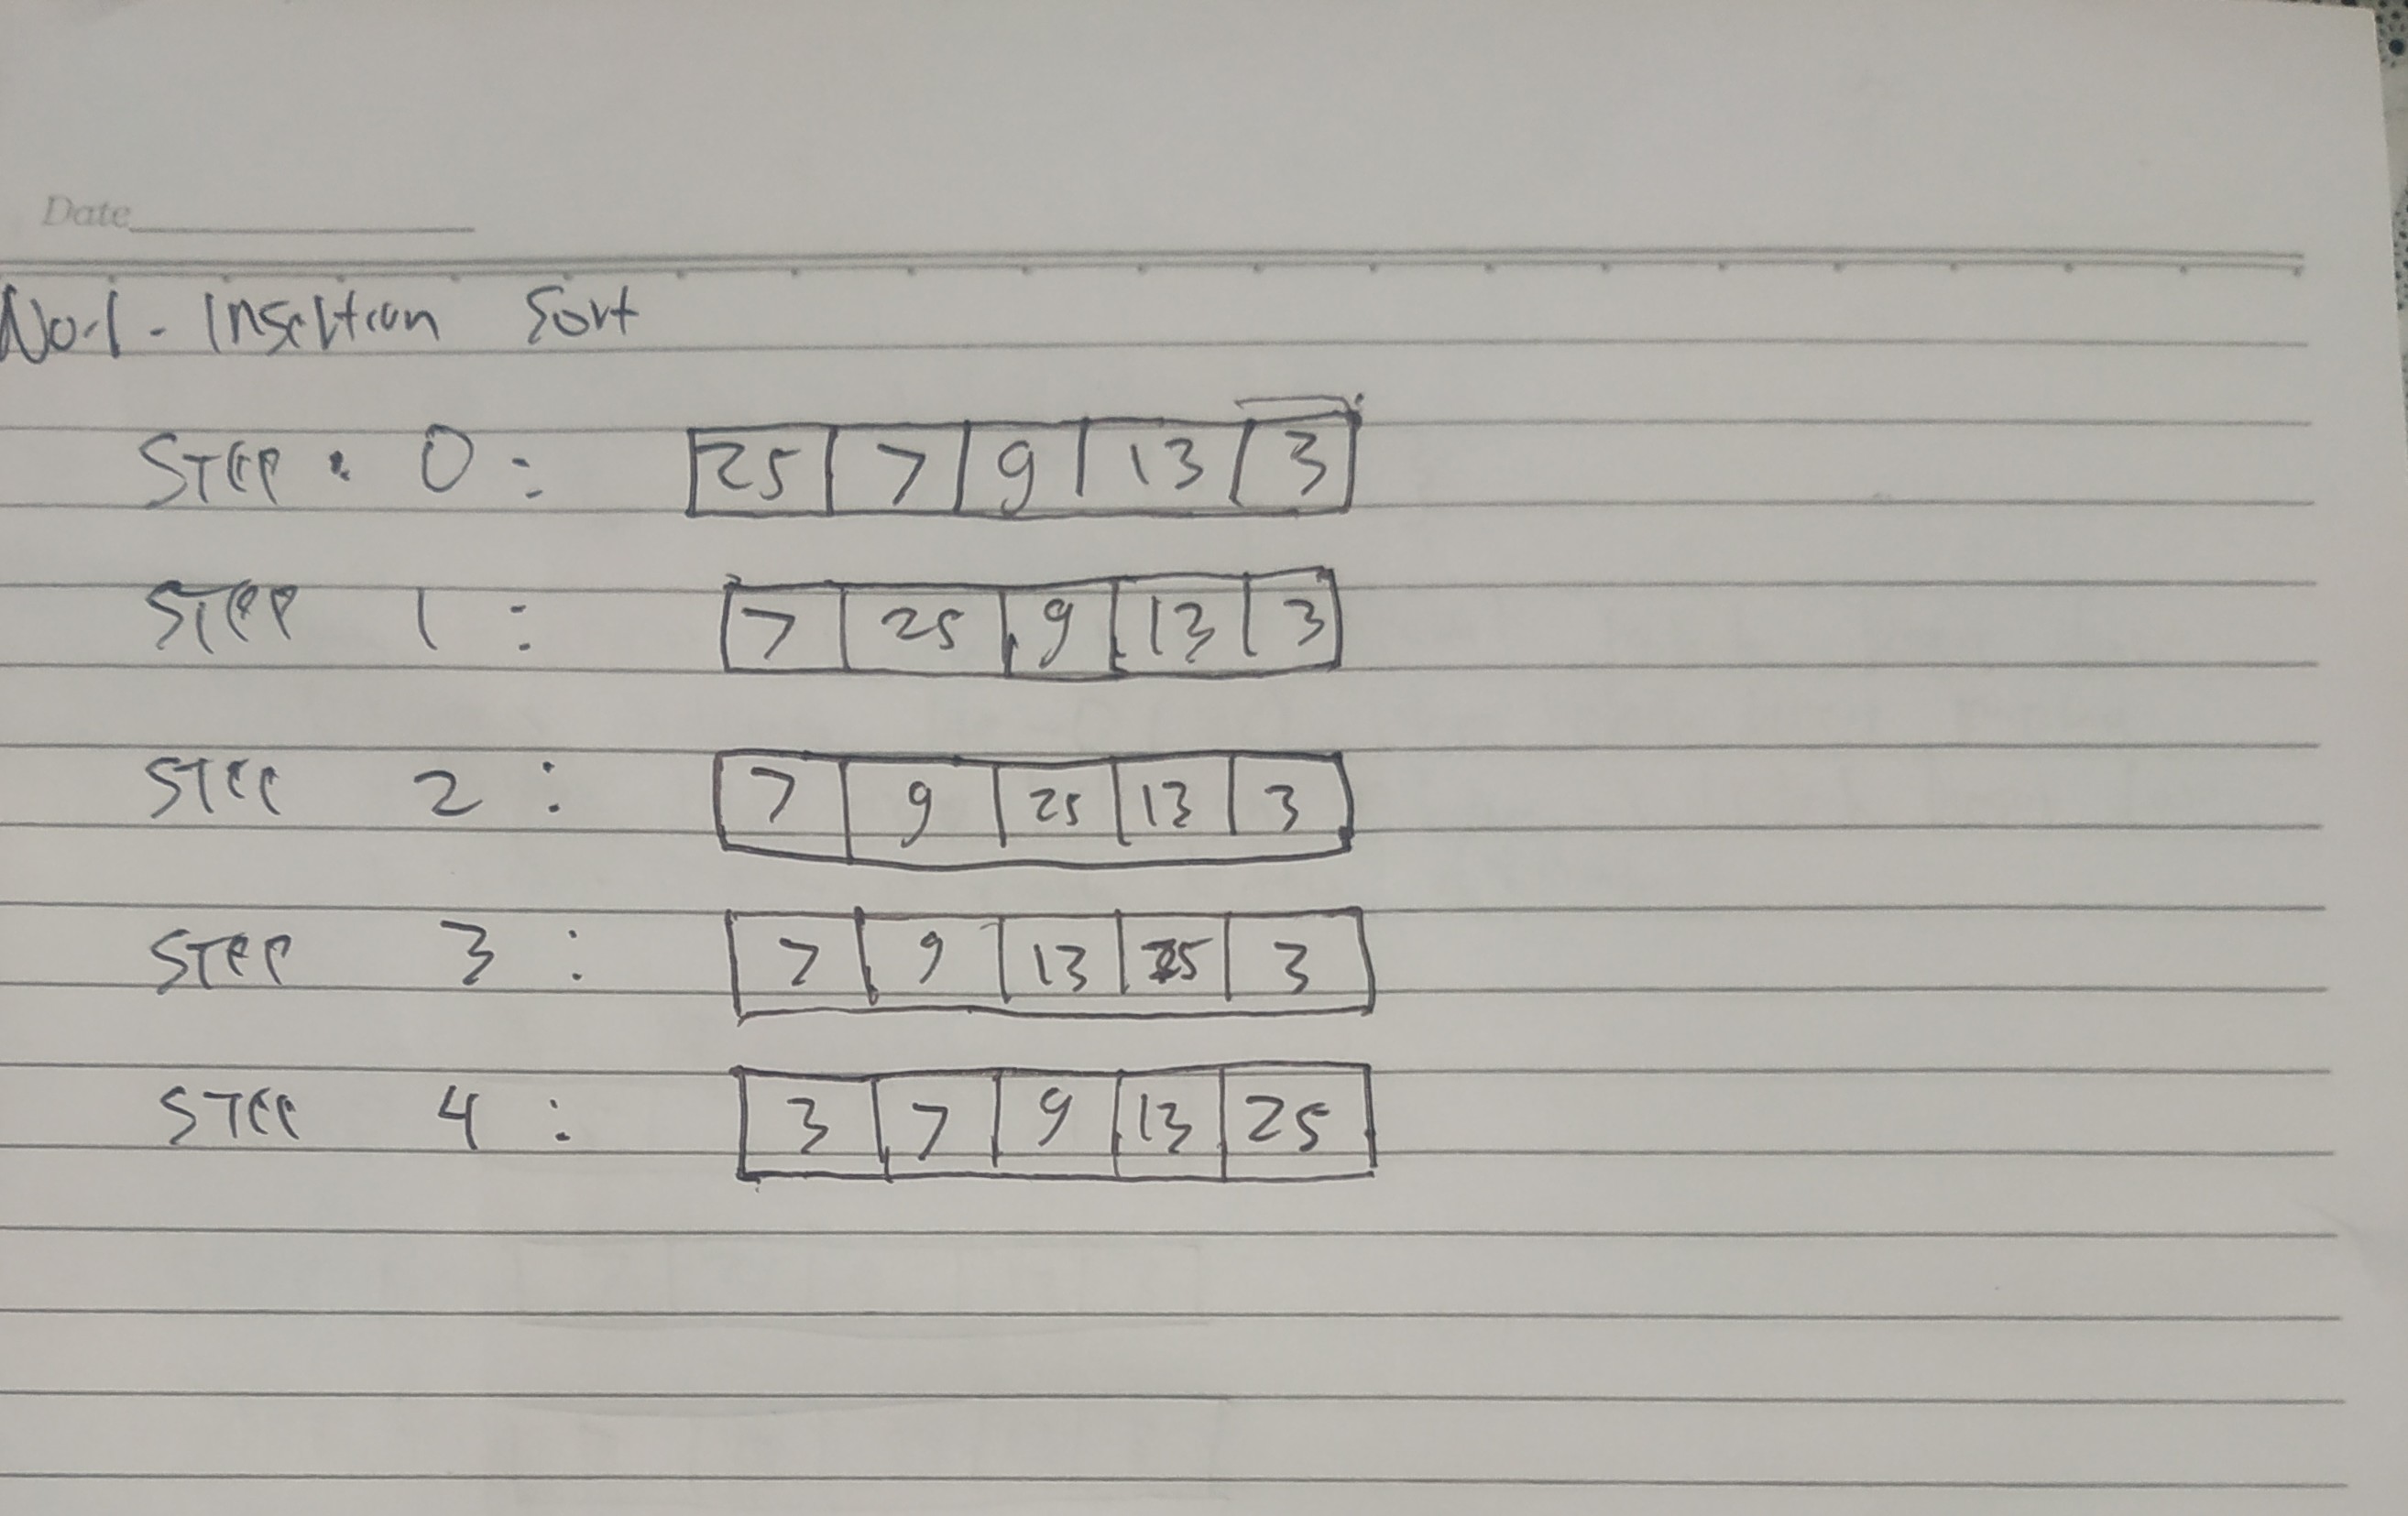 Date
No.1 - Insertion Sort
Step 0 : 25 7 9 13 3
Step 1 : 7 25 9 13 3
Step 2 : 7 9 25 13 3
Step 3 : 7 9 13 25 3
Step 4 : 3 7 9 13 25